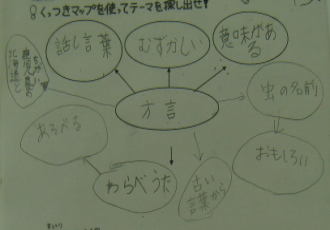 くっつきマップを使ってテーマを探し出せ!
話し言葉
むずかしい
意味がある
ちがい
北海道と
方言
虫の名前
あそべる
おもしろい
わらべうた
古い
言葉から